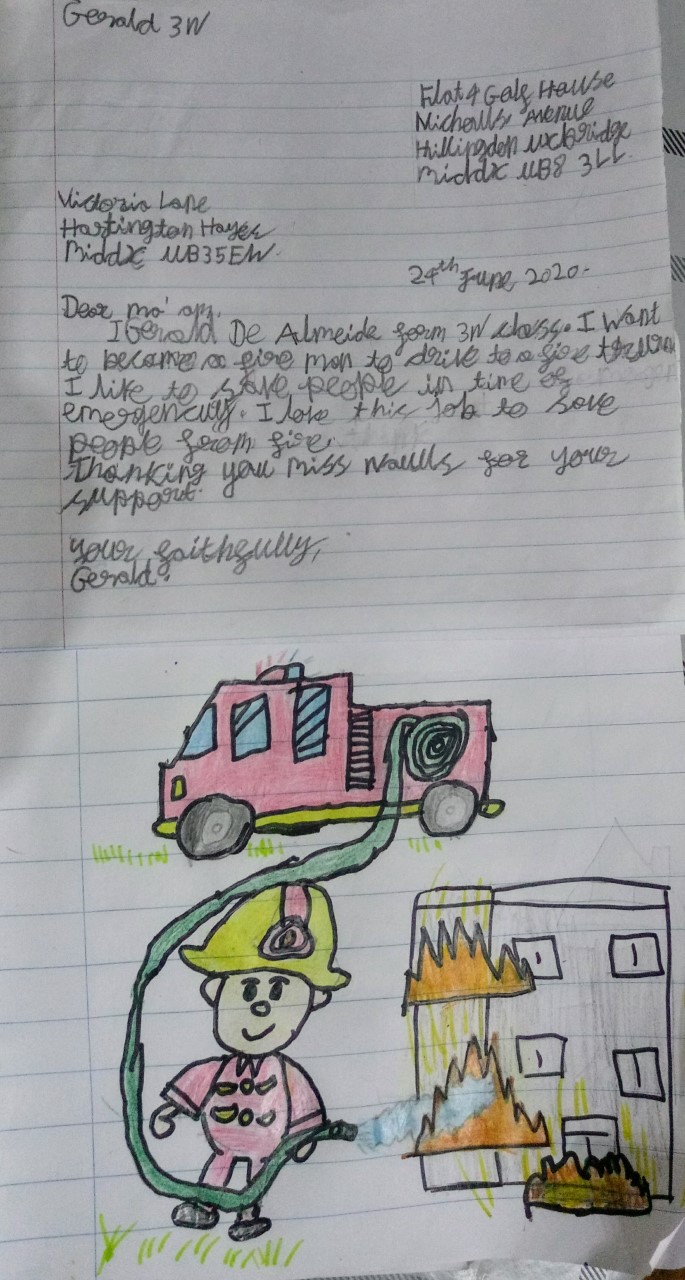 Gerald 3W
Flat 4 Gale House
Nicholls Avenue
Hillingdon Uxbridge
Middx UB8 3LL
Victoria Lane
Hartington Hayes
Middx UB35EW.
24th June, 2020.
Dear ma'am,
I Gerald De Almeida form 3W class. I want
to become a fire man to drive to a fire
I like to save people in time of
emergency. I love this Job to save
people from fire.
Thanking you Miss for your
support.
Your faithfully,
Gerald.